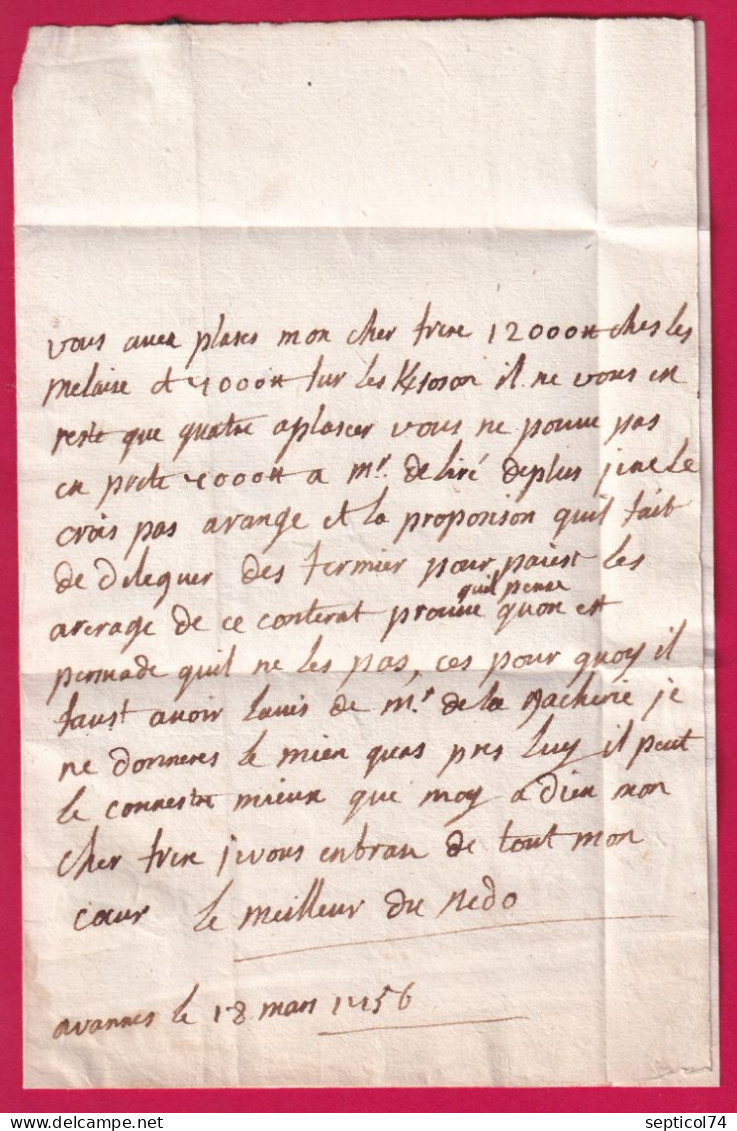 vous aves plases mon cher frere 12000# ches les
melaise et 4000# sur les il ne vous en
reste que quatre aplascer vous ne pouve pas
en prete 4000# a mr. de liré deplus je ne le
crois pas arange et la proposison quil fait
de deleguer des fermier pour paiest les
arerage de ce conterat prouve quil pense quon est
persuade quil ne les pas, ces pour quoy il
faust avoir lavis de mr de la Bacherie je
ne donneres le mien quas pres luy il peut
le connestre mieux que moy a dieu mon
cher frere je vous enbrase de tout mon
cœur le meilleur du nedo
avannes le 18 mars 1756
septicol74